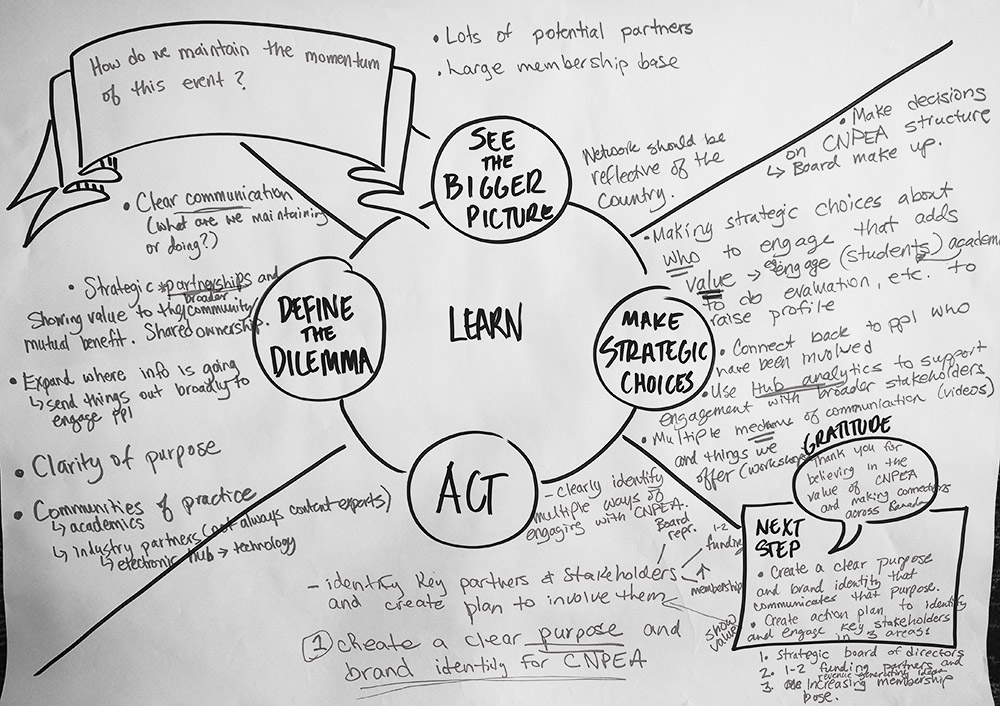 How do we maintain the momentum
of this event?
• Lots of potential partners
• Large membership base
SEE
THE
BIGGER
PICTURE
Network should be
reflective of the
country.
• Make decisions
on CNPEA structure
↳ Board make up.
• Clear communication
(What are we maintaining
or doing?)
• Strategic partnerships and
broader
Showing value to the community
mutual benefit. Shared ownership.
• Expand where info is going
↳ send things out broadly to
engage ppl
DEFINE
THE
DILEMMA
LEARN
MAKE
STRATEGIC
CHOICES
• Making strategic choices about
who to engage that adds
value → engage (students) academ
to do evaluation, etc. to
raise profile
• Connect back to ppl who
have been involved
• Use Hub analytics to support
engagement with broader stakeholders
• Multiple mediums of communication (videos)
and things we
offer (workshops
• Clarity of purpose
• Communities of practice
↳ academics
↳ industry partners (not always content experts)
↳ electronic hub → technology
ACT
- clearly identify
multiple ways of
engaging with CNPEA.
Board
repr.
1-2
funding
membership
- identify key partners & stakeholders
and create plan to involve them
show
value
1 create a clear purpose and
brand identity for CNPEA
GRATITUDE
Thank you for
believing in the
value of CNPEA
and making connections
across
NEXT
STEP
• Create a clear purpose
and brand identity that
communicates that purpose.
• Create action plan to identify
and engage key stakeholders
in 3 areas
1. Strategic board of directors
2. 1-2 funding partners and
revenue generating ideas
3. Increasing membership
base.